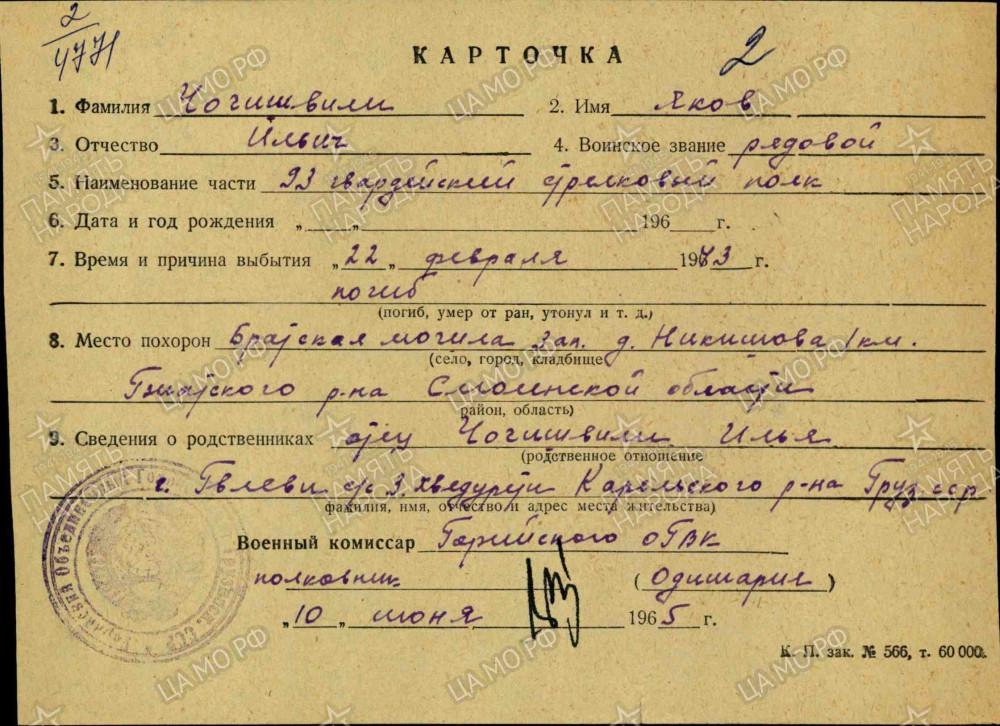 2
4771
КАРТОЧКА 2
1. Фамилия Чогишвили 2. Имя Яков
3. Отчество Ильич 4. Воинское звание рядовой
5. Наименование части 93 гвардейский стрелковый полк
6. Дата и год рождения „ „ 196 г.
7. Время и причина выбытия „22„ февраля 1943 г.
погиб
(погиб, умер от ран, утонул и т. д.)
8. Место похорон Братская могила зап. д. Никишова 1 км.
(село, город, кладбище
Гжатского р-на Смоленской области
район, область)
9. Сведения о родственниках отец Чогишвили Илья
(родственное отношение
Гвлеви с/с З. Хведурети Карельского р-на Груз. сср
фамилия, имя, отчество и адрес места жительства)
Военный комиссар Горийского ОГВК
полковник (Одишария)
„10„ июня 1965 г.
К. П. зак. № 566, т. 60 000.
ПАМЯТЬ НАРОДА
ЦАМО.РФ